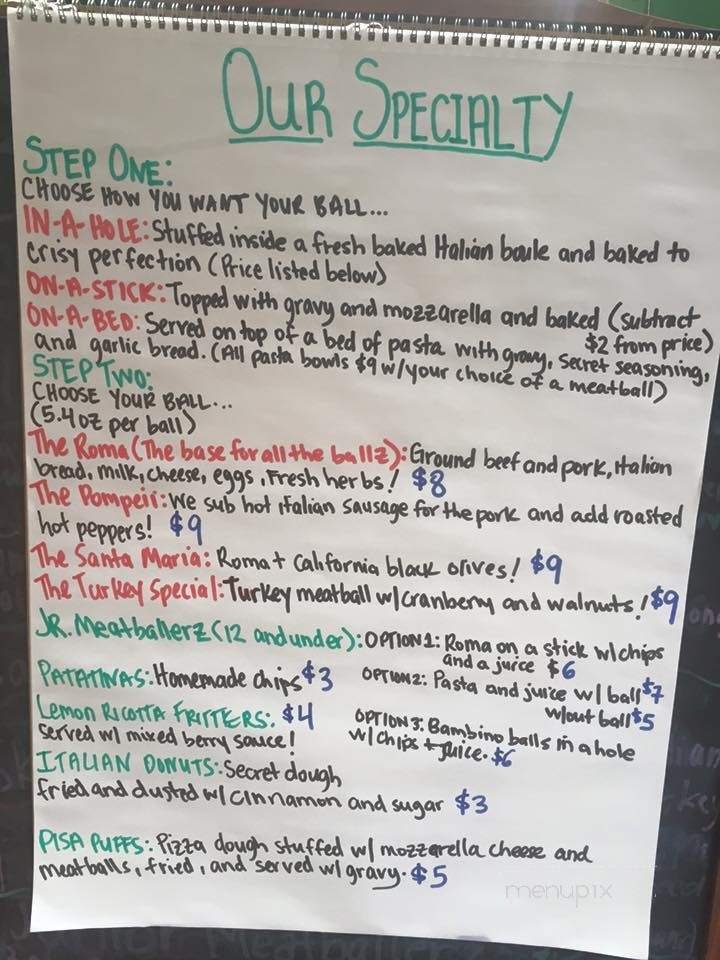 OUR SPECIALTY
STEP ONE:
CHOOSE HOW YOU WANT YOUR BALL...
IN-A-HOLE: Stuffed inside a fresh baked Italian boule and baked to
crisy perfection (Price listed below)
ON-A-STICK: Topped with gravy and mozzarella and baked (subtract
$2 from price)
ON-A-BED: Served on top of a bed of pasta with gravy, secret seasoning,
and garlic bread. (All pasta bowls $9 w/your choice of a meatball)
STEP TWO:
CHOOSE YOUR BALL...
(5.4 oz per ball)
The Roma (The base for all the ballz): Ground beef and pork, Italian
bread, milk, cheese, eggs, Fresh herbs! $8
The Pompeii: We sub hot Italian sausage for the pork and add roasted
hot peppers! $9
The Santa Maria: Roma + California black olives! $9
The Turkey Special: Turkey meatball w/cranberry and walnuts! $9
JR. Meatballerz (12 and under): OPTION 1: Roma on a stick w/chips
and a juice $6
PATATINAS: Homemade chips $3
OPTION 2: Pasta and juice w/ ball $7
w/out ball $5
Lemon RICOTTA FRITTERS: $4
served w/ mixed berry sauce!
OPTION 3: Bambino balls in a hole
w/chips + juice. $6
ITALIAN DONUTS: Secret dough
fried and dusted w/ cinnamon and sugar $3
PISA PUFFS: Pizza dough stuffed w/ mozzarella cheese and
meatballs, fried, and served w/ gravy. $5
menupix